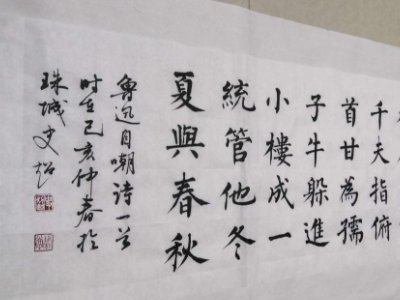 千夫指俯
首甘為孺
子牛躲進
小樓成一
統管他冬
夏與春秋
魯迅自嘲詩一首
時在己亥仲春於
珠城史超